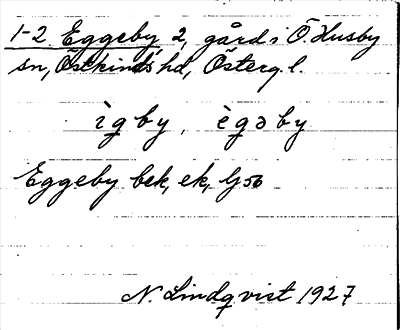 1-2 Eggeby 2, gård i Ö. Husby
sn, Östkinds hd, Österg l.
ìgby, ègəby
Eggeby bek, ek, G 56
N. Lindqvist 1927